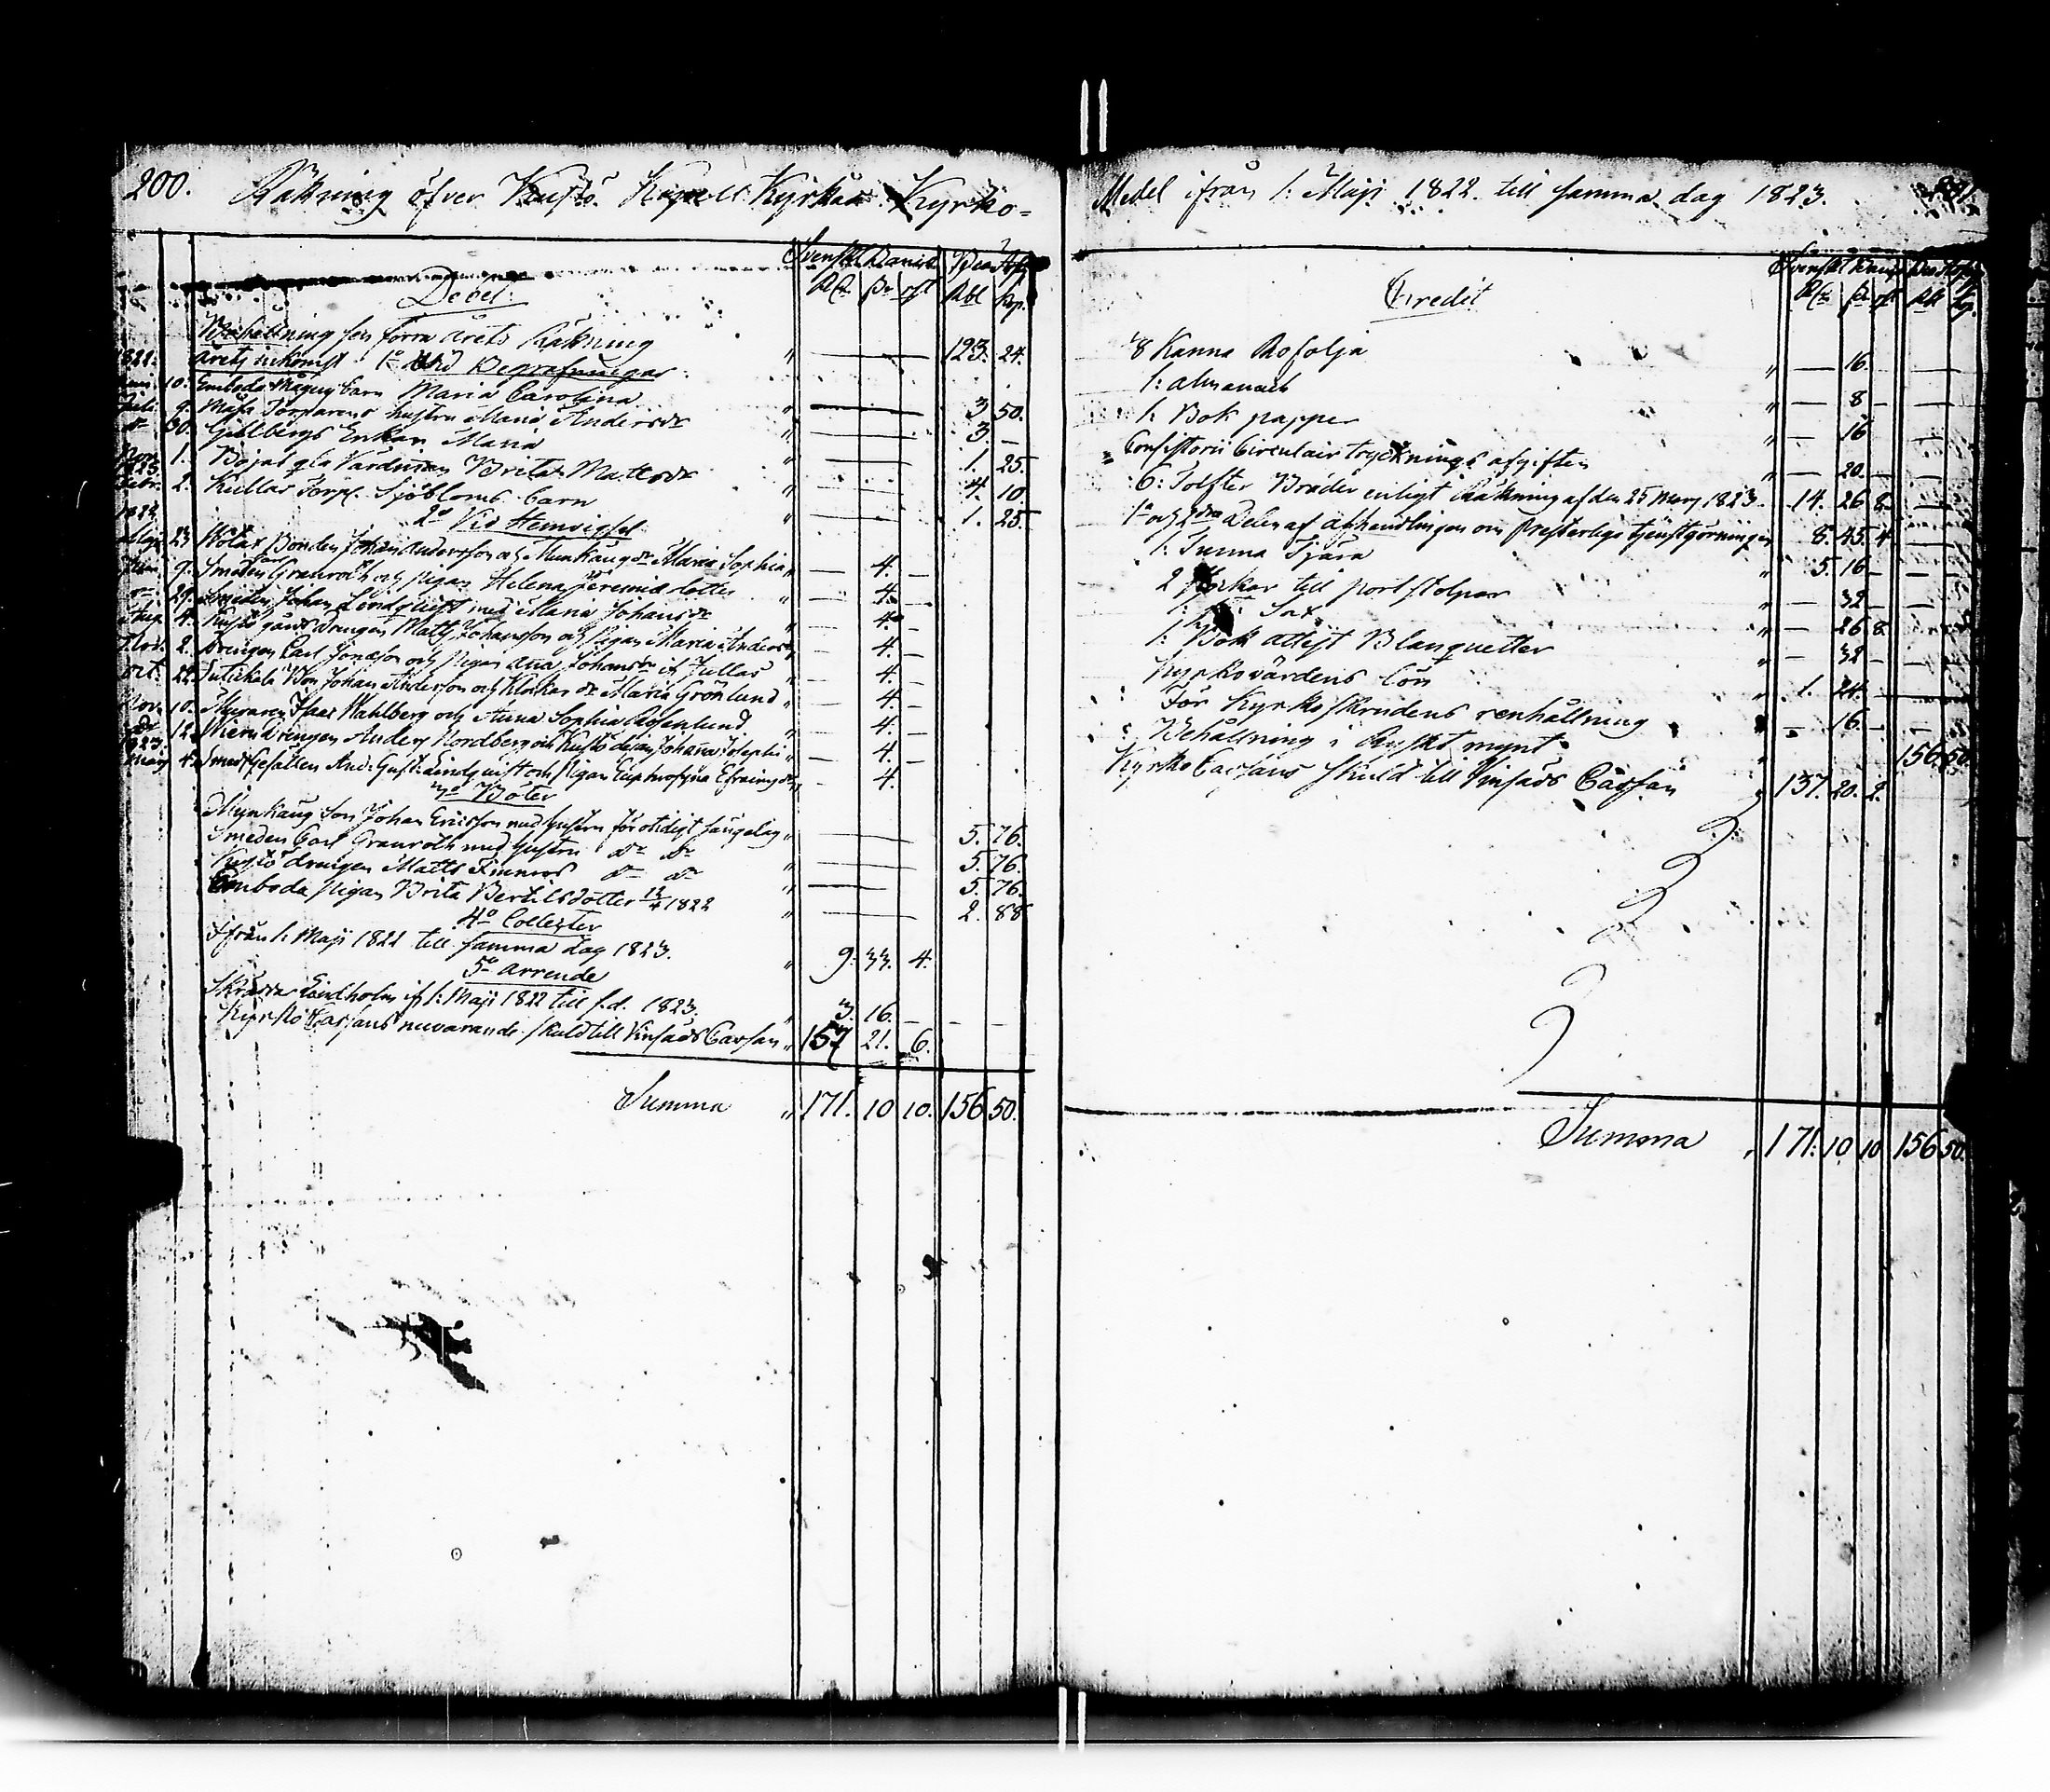 200. Räkning öfver Kustö Kapell Kyrkas Kyrko=
Svenskt Banco Bco Ass.
Debet. R:dr sk. rst Rbl kop.
Behållning från förra årets Räkning " — — — 123. 24.
1822. årets inkomst 1:o Vid Begrafningar
Juni 10. Emboda Mågens barn Maria Carolina " — — — 3 50.
Juli 9. Torparens hustru Maria Andersdr " — — — 3. —
do 30. Gillbergs Enkan Maria " — — — 1. 25.
Nov. 1. Böjal gla Värdinnan Brita Mattsdr " — — — 4. 10.
1823.
Febr. 2. Kullas Torp. Sjöbloms barn " — — — 1. 25.
1822. 2:o Vid Hemvigsel
Maji 23 Bonden Johan Andersson och Munkäng dr Maria Sophia " — 4. —
Juni 9. Smeden Granroth och Pigan Helena Jeremiæ dotter " — 4. —
do 29. Smeden Johan Lindqvist med Maria Johansdr " — 4. —
Aug. 4. Kustö gårds drängen Matts Johansson och Pigan Maria Andersdr " — 4. —
2. Drängen Carl Jonasson och Pigan Ana Johansdr if. Jullas " — 4. —
oct. 22. Bon Johan Anderson och Klockar dr Maria Grönlund " — 4. —
Nov. 10. Muraren Isaac Wahlberg och Anna Sophia Rosenlund " — 4. —
12. drängen Anders Nordberg och Kustö dejan Johana Josephi " — 4. —
1823.
Mars 4. Smed Gesällen And. Gust. Lindqvist och Pigan Euphrosyna Efraimsdr " — 4.
3:o Böter
Mynkäng Son Johan Ericsson med hustru för otidigt sängelag " — — — 5. 76.
Smeden Carl Granroth med hustru do do " — — — 5. 76.
Kustö drängen Matts Finneros do do " — — — 5. 76.
Emboda pigan Brita Bertilsdotter 1822 " — — — 2. 88
4:o Collecter
Ifrån 1: Maji 1822 till samma dag 1823. " 9. 33. 4.
5:o Arrende
Skräddar Lindholm if. 1: Maji 1822 till s.d. 1823. " 3. 16. — — —
Kyrko Cassans nuvarande skuld till Vinfads Cassan " 157 21. 6.
Summa " 171. 10 10. 156 50.
Medel ifrån 1: Maji 1822. till samma dag 1823. 201.
Svenskt Banco Bco Ass.
Credit R:dr sk. rst Rbl kop.
8 Kanna Rofolja " — 16.
1: almanach " — 8 —
1: Bok papper " — 16
Consistorii Circulair trycknings afgiften " — 20. —
6: Tolfter Bräder enligt Räkning af den 25 Mars 1823. 14. 26 8.
1:a och 2:dra Delen af afhandlingen om Presterliga tjenstgörningen 8. 45. 4
1: Tunna Tjära " 5. 16 —
2 till portstolpar " — 32 —
1: Sax " — 26 8.
1: Bok attest Blanquetter " — 32 —
Kyrkovärdens lön " 1. 24. —
För Kyrko skrudens renhållning " — 16. —
Behållning i Ryskt mynt " 156. 50
Kyrko Cassans skuld till Vinfads Cassan " 137. 20. 2.
Summa " 171. 10 10 156 50.